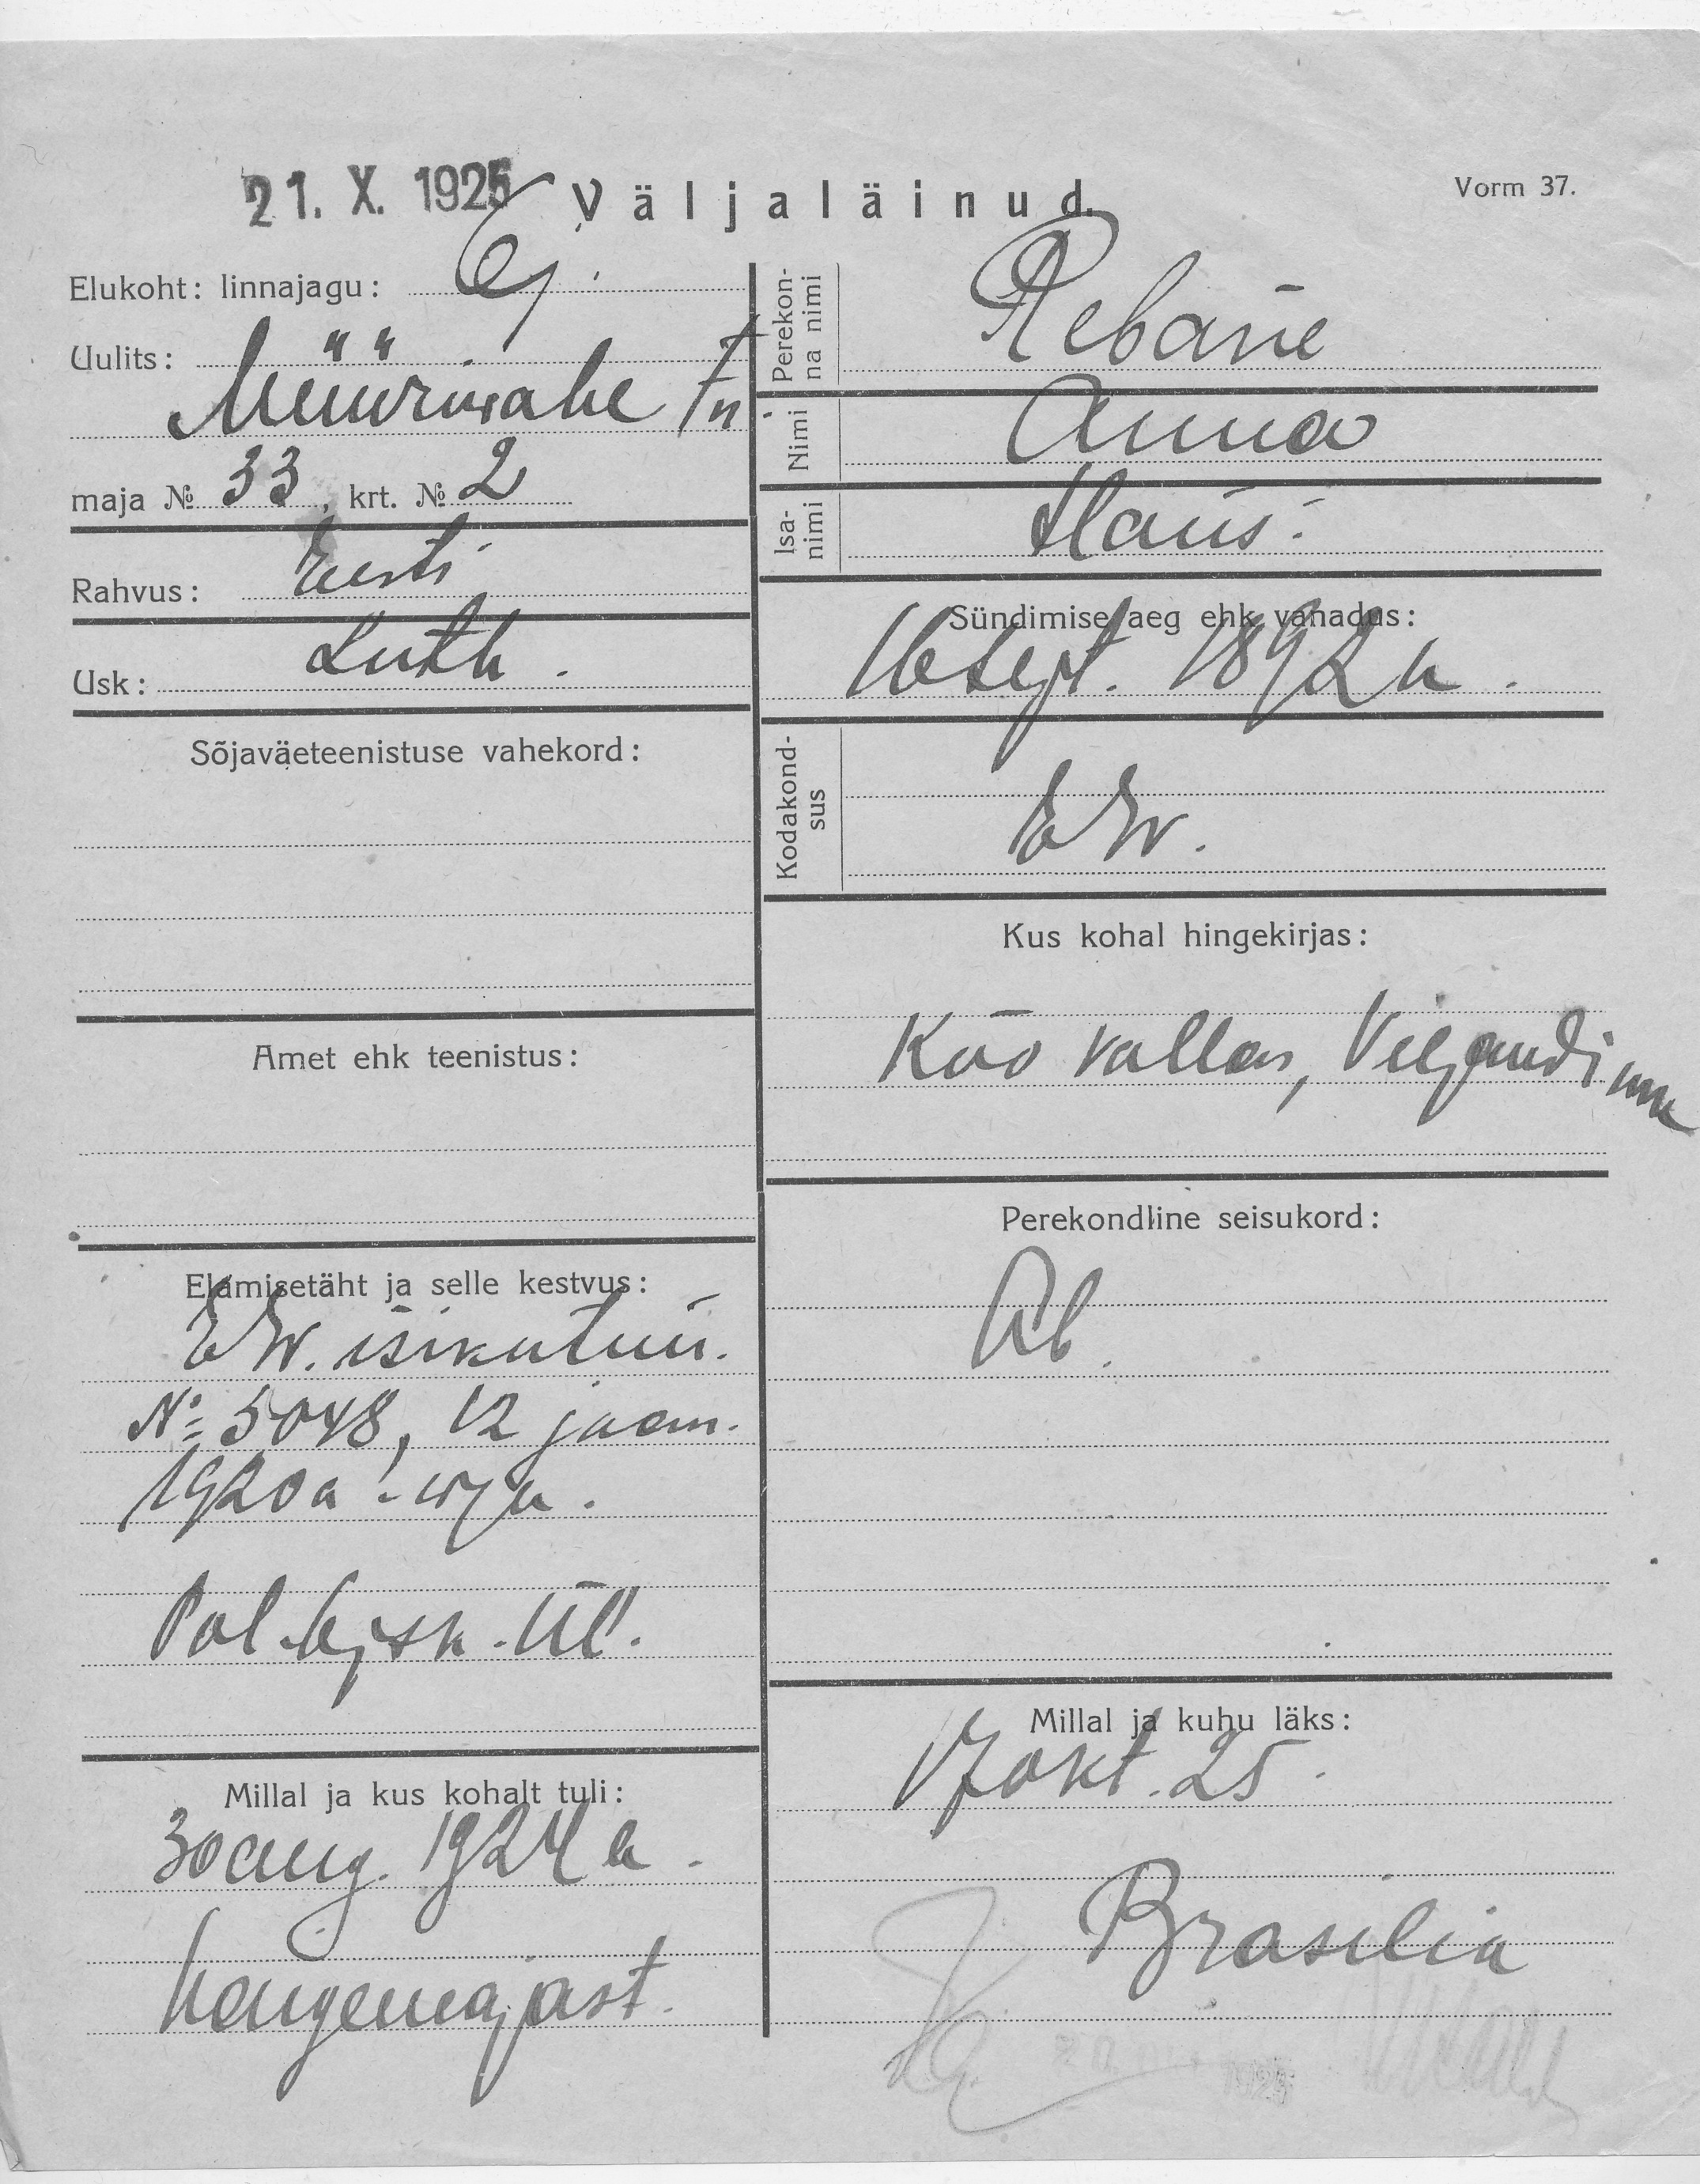 21. X. 1925
Väljaläinud.
Vorm 37.
Elukoht: linnajagu:
Uulits:
Müürivahe tn.
maja № 33, krt. № 2
Rahvus: Eesti
Usk: Luth.
Sõjaväeteenistuse vahekord:
Amet ehk teenistus:
Elamisetäht ja selle kestvus:
E.W. isikutun.
№ 5048, 12 jaan.
1920a.
Pol.
Millal ja kus kohalt tuli:
30 aug. 1924 a.
haigemajast.
Perekonna nimi
Rebane
Nimi
Anna
Isanimi
Hans.
Sündimise aeg ehk vanadus:
16 sept. 1892 a.
Kodakondsus
E.W.
Kus kohal hingekirjas:
Kõo vallas, Viljandimm
Perekondline seisukord:
Ab.
Millal ja kuhu läks:
17 okt. 25.
Brasilia